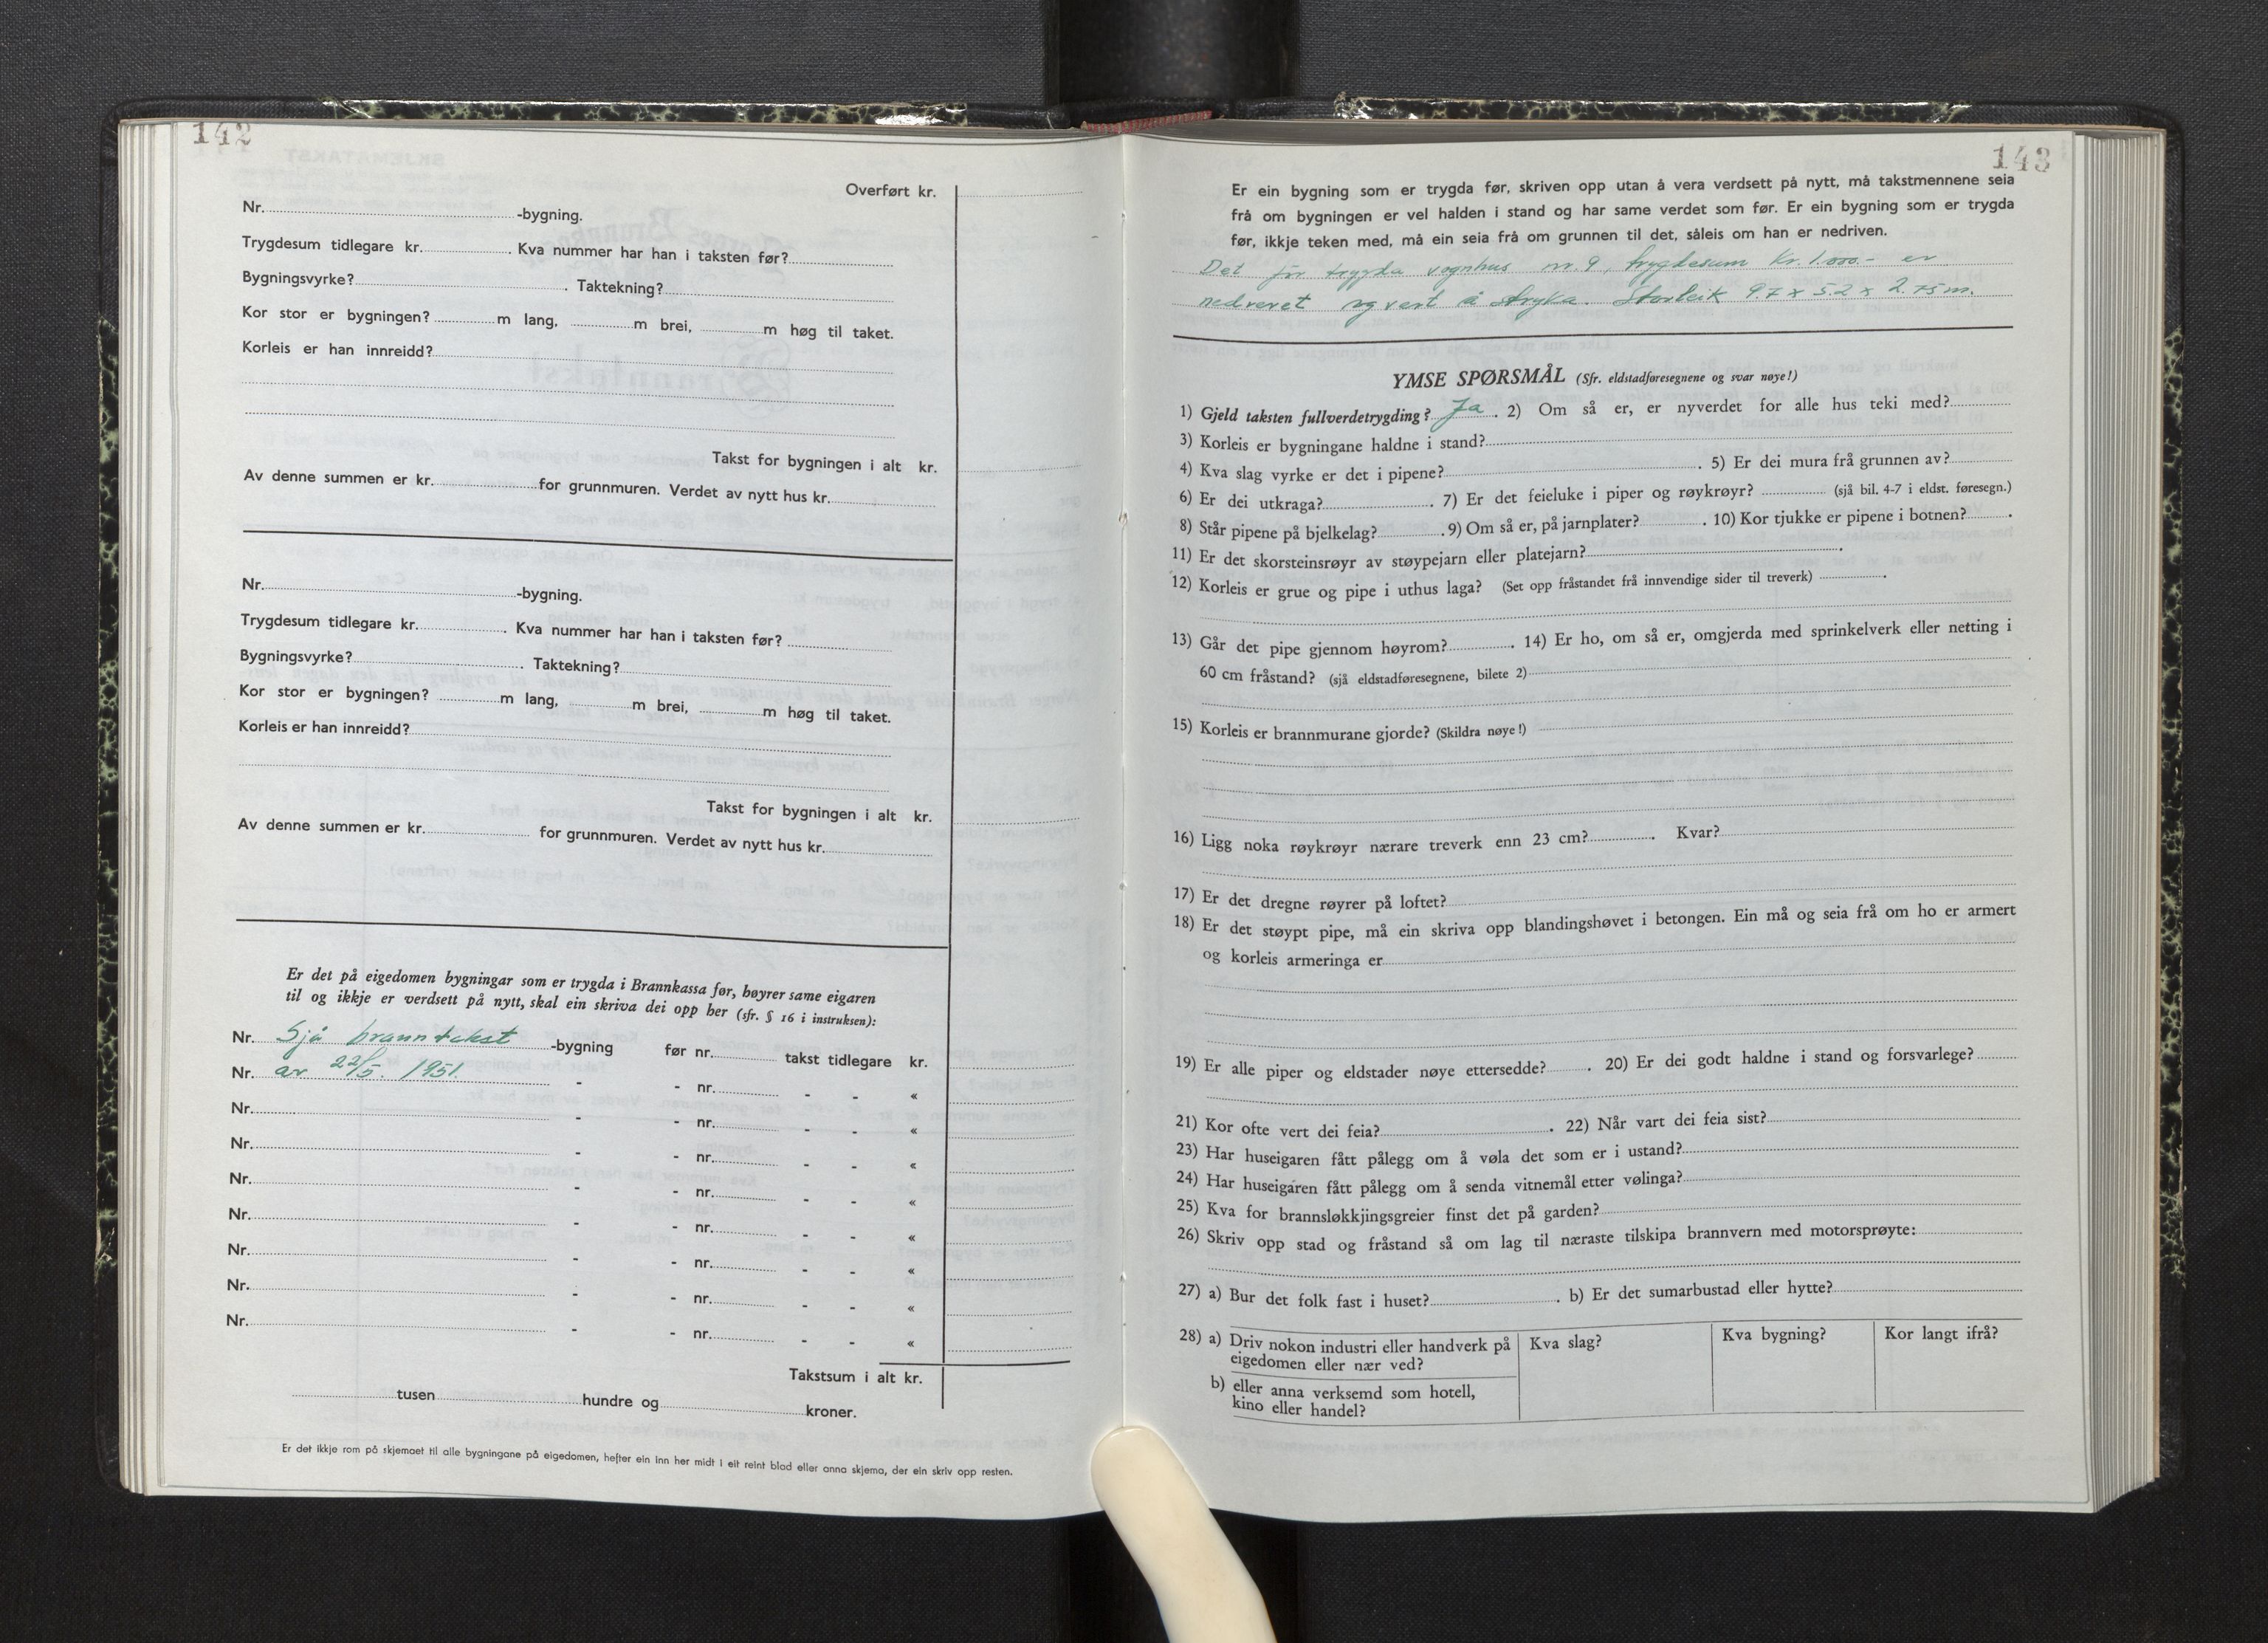 142
Overført kr.
Nr. -bygning.
Trygdesum tidlegare kr. . Kva nummer har han i taksten før?
Bygningsvyrke? . Taktekning?
Kor stor er bygningen? m lang, m brei, m høg til taket.
Korleis er han innreidd?
Takst for bygningen i alt kr.
Av denne summen er kr. for grunnmuren. Verdet av nytt hus kr.
Nr. -bygning.
Trygdesum tidlegare kr. . Kva nummer har han i taksten før?
Bygningsvyrke? . Taktekning?
Kor stor er bygningen? m lang, m brei, m høg til taket.
Korleis er han innreidd?
Takst for bygningen i alt kr.
Av denne summen er kr. for grunnmuren. Verdet av nytt hus kr.
Er det på eigedomen bygningar som er trygda i Brannkassa før, høyrer same eigaren
til og ikkje er verdsett på nytt, skal ein skriva dei opp her (sfr. § 16 i instruksen):
Nr. Sjå branntakst -bygning før nr. takst tidlegare kr.
Nr. av 22/5. 1951. - - nr. - - «
Nr. - - nr. - - «
Nr. - - nr. - - «
Nr. - - nr. - - «
Nr. - - nr. - - «
Nr. - - nr. - - «
Nr. - - nr. - - «
Nr. - - nr. - - «
Takstsum i alt kr.
tusen hundre og kroner.
Er det ikkje rom på skjemaet til alle bygningane på eigedomen, hefter ein inn her midt i eit reint blad eller anna skjema, der ein skriv opp resten.
143
Er ein bygning som er trygda før, skriven opp utan å vera verdsett på nytt, må takstmennene seia
frå om bygningen er vel halden i stand og har same verdet som før. Er ein bygning som er trygda
før, ikkje teken med, må ein seia frå om grunnen til det, såleis om han er nedriven.
Det før trygda vognhus nr. 9, trygdesum Kr. 1.000.- er
nedrevet og vert å stryka. Storleik 9.7 x 5.2 x 2.75 m.
YMSE SPØRSMÅL (Sfr. eldstadføresegnene og svar nøye!)
1) Gjeld taksten fullverdetrygding? Ja . 2) Om så er, er nyverdet for alle hus teki med?
3) Korleis er bygningane haldne i stand?
4) Kva slag vyrke er det i pipene? . 5) Er dei mura frå grunnen av?
6) Er dei utkraga? . 7) Er det feieluke i piper og røykrøyr? (sjå bil. 4-7 i eldst. føresegn.)
8) Står pipene på bjelkelag? . 9) Om så er, på jarnplater? . 10) Kor tjukke er pipene i botnen? .
11) Er det skorsteinsrøyr av støypejarn eller platejarn? .
12) Korleis er grue og pipe i uthus laga? (Set opp fråstandet frå innvendige sider til treverk) .
13) Går det pipe gjennom høyrom? . 14) Er ho, om så er, omgjerda med sprinkelverk eller netting i
60 cm fråstand? (sjå eldstadføresegnene, bilete 2)
15) Korleis er brannmurane gjorde? (Skildra nøye!)
16) Ligg noka røykrøyr nærare treverk enn 23 cm? . Kvar?
17) Er det dregne røyrer på loftet?
18) Er det støypt pipe, må ein skriva opp blandingshøvet i betongen. Ein må og seia frå om ho er armert
og korleis armeringa er
19) Er alle piper og eldstader nøye ettersedde? . 20) Er dei godt haldne i stand og forsvarlege?
21) Kor ofte vert dei feia? . 22) Når vart dei feia sist?
23) Har huseigaren fått pålegg om å vøla det som er i ustand?
24) Har huseigaren fått pålegg om å senda vitnemål etter vølinga?
25) Kva for brannsløkkjingsgreier finst det på garden?
26) Skriv opp stad og fråstand så om lag til næraste tilskipa brannvern med motorsprøyte:
27) a) Bur det folk fast i huset? . b) Er det sumarbustad eller hytte?
28) a) Driv nokon industri eller handverk på Kva slag? Kva bygning? Kor langt ifrå?
eigedomen eller nær ved?
b) eller anna verksemd som hotell,
kino eller handel?